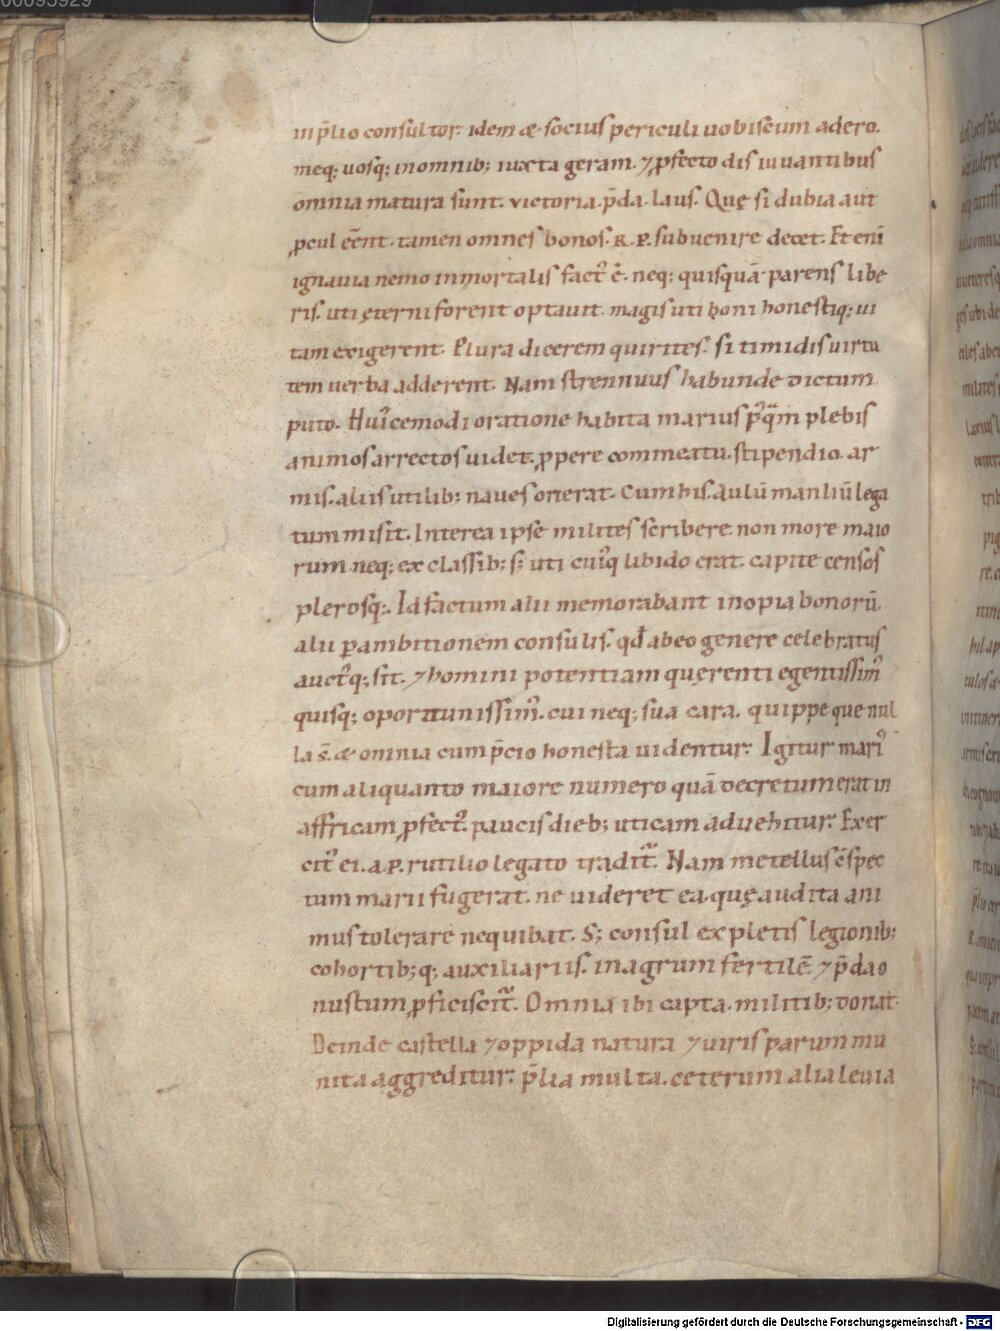 00095929
in p̄lio consultor. idem æ socius periculi uobiscum adero.
meq; uosq; in omnib; iuxta geram. ⁊ ꝓfecto dis iuuantibus
omnia matura sunt. victoria. p̄da. laus. Quę si dubia aut
ꝓcul eēnt. tamen omnes bonos. R. P. subuenire decet. Et eni͂
ignauia nemo inmortalis fact᾽ ē. neq; quisquā parens libe
ris. uti ęterni forent optauit. magis uti boni honestiq; ui
tam exigerent. Plura dicerem quirites. si timidis uirtu
tem uerba adderent. Nam strennuus habunde dictum
puto. Hui᾽cemodi oratione habita marius p᾽qᵃm plebis
animos arrectos uidet. ꝓpere commeatu. stipendio. ar
mis. aliis utilib; naues onerat. Cum his. Aulū manliū lega
tum misit. Interea ipse milites scribere non more maio
rum neq; ex classib; s; uti cui᾽q libido erat. capite censos
plerosq;. Id factum alii memorabant inopia bonorū.
alii ꝑ ambitionem consulis. qđ abeo genere celebratus
auct᾽q; sit. ⁊ homini potentiam quęrenti egentissim᾽
quisq; oportunissim᾽. cui neq; sua cara. quippe que nul
la s̄. æ omnia cum p̄cio honesta uidentur. Igitur mari᾽
cum aliquanto maiore numero quā decretum erat in
affricam ꝓfect᾽. paucis dieb; uticam aduehitur. Exer
cit᾽ ei. a. P. rutilio legato tradit᷑. Nam metellus c̄spec
tum marii fugerat. ne uideret ea. quę audita ani
mus tolerare nequibat. S; consul expletis legionib;
cohortib; q; auxiliariis. in agrum fertilē ⁊ p̄da o
nustum ꝓficiscit᷑. Omnia ibi capta. militib; donat.
Deinde castella ⁊ oppida natura ⁊ uiris parum mu
nita aggreditur. p̄lia multa. ceterum alia leuia
Digitalisierung gefördert durch die Deutsche Forschungsgemeinschaft - DFG